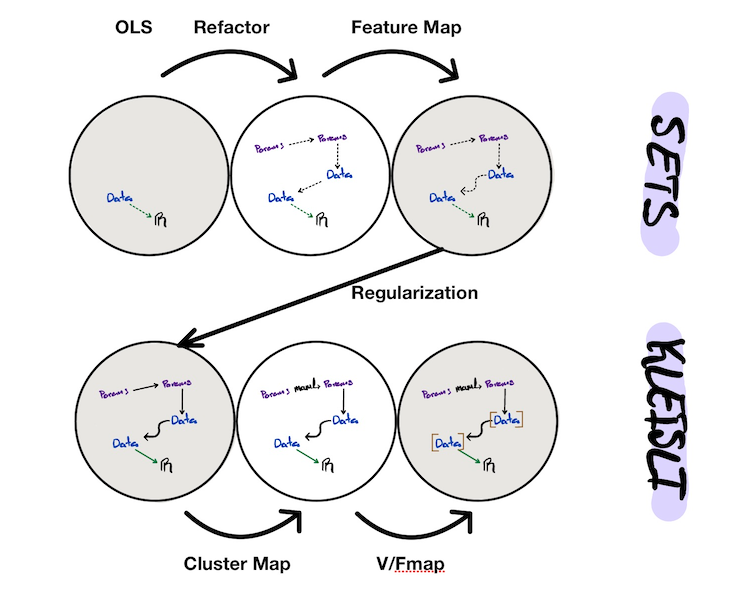 OLS Refactor Feature Map
Params Params
Data
Data
R
Params Params
Data
Data
R
Data
R
SETS
Regularization
Params Params
Data
Data
R
Params manl Params
Data
Data
R
Params manl Params
[Data]
[Data]
R
KLEISLI
Cluster Map V/Fmap